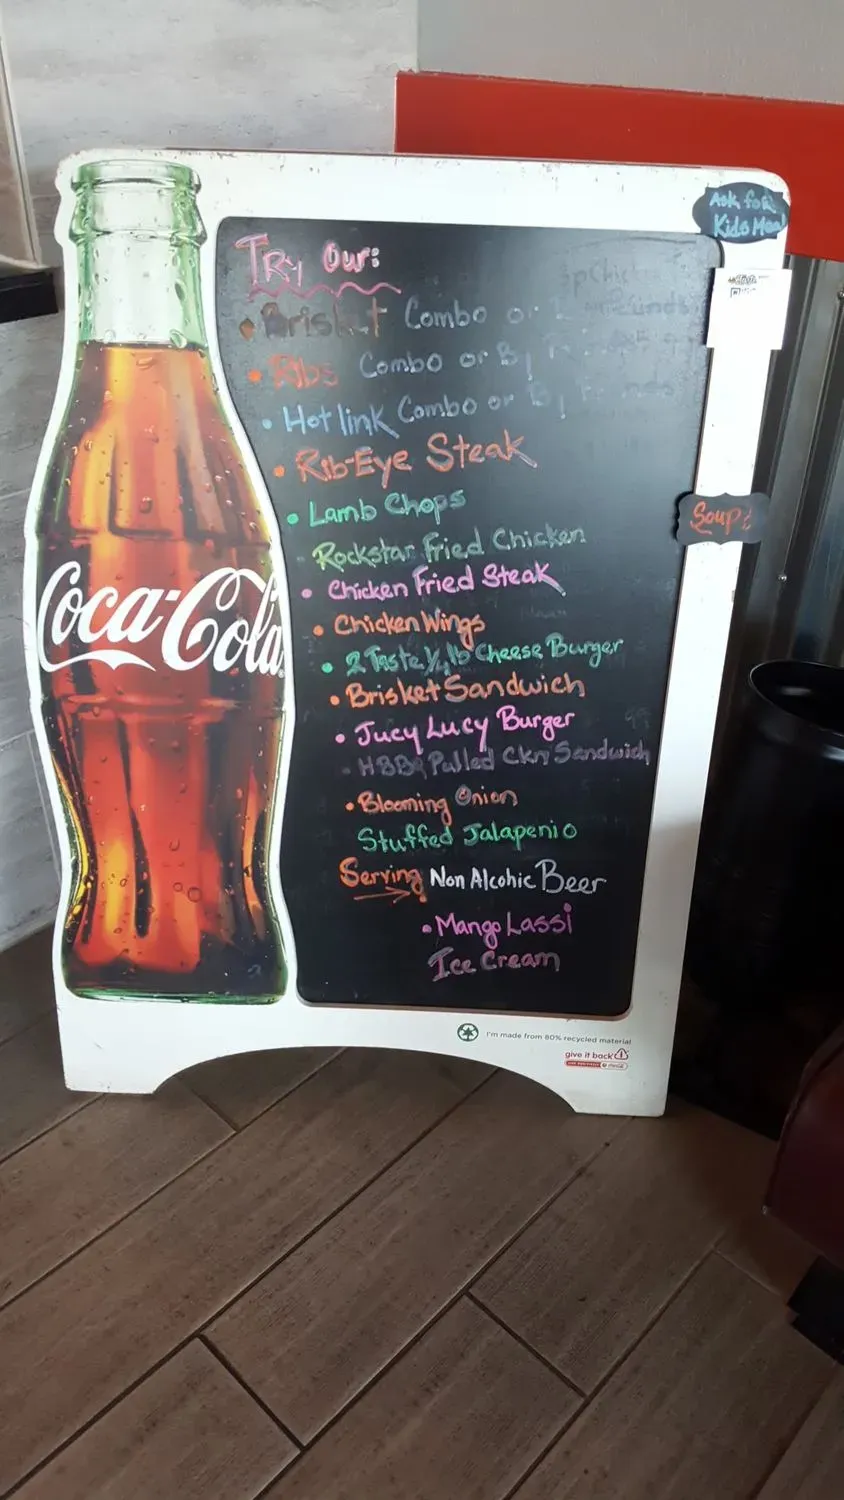 Ask for
Kids Meal
Try Our:
• Brisket Combo or
• Ribs Combo or By
• Hotlink Combo or By
• Rib-Eye Steak
• Lamb Chops
Rockstar Fried Chicken
• Chicken Fried Steak
• Chicken Wings
• 2 Taste ½ lb Cheese Burger
• Brisket Sandwich
• Jucy Lucy Burger
• HBBQ Pulled Ckn Sandwich
• Blooming Onion
Stuffed Jalapenio
Serving Non Alcohic Beer
• Mango Lassi
Ice Cream
Soups
Coca-Cola
I'm made from 80% recycled material
give it back